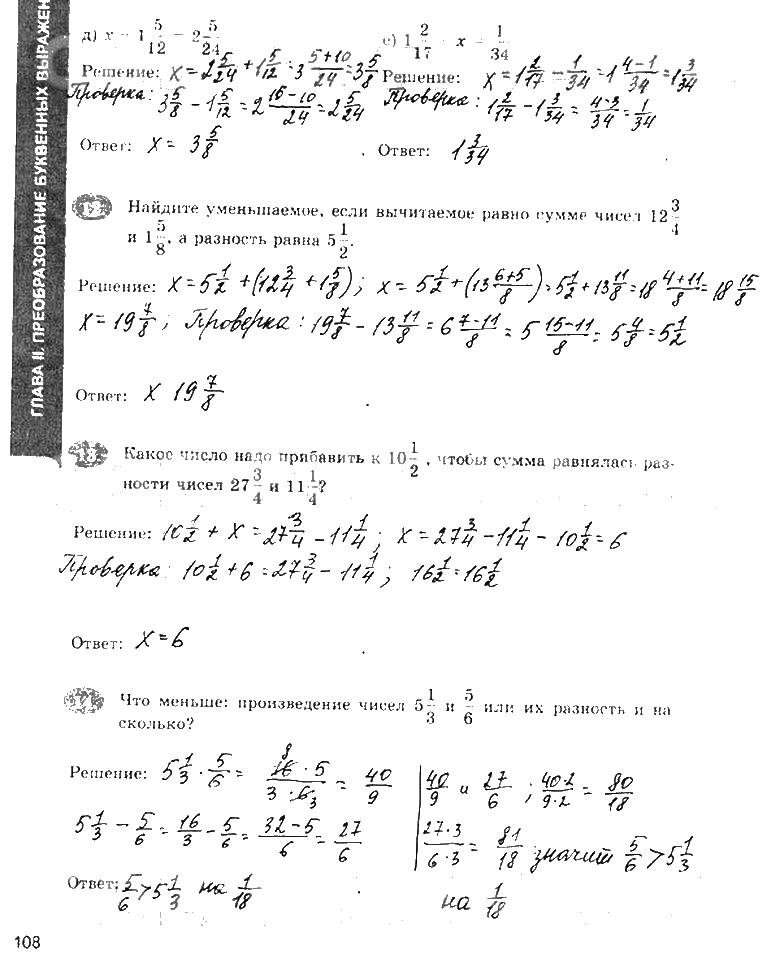 ГЛАВА II. ПРЕОБРАЗОВАНИЕ БУКВЕННЫХ ВЫРАЖЕН
д) x − 1 5/12 = 2 5/24
Решение: x = 2 5/24 + 1 5/12 = 3 (5+10)/24 = 3 5/8
Проверка: 3 5/8 − 1 5/12 = 2 (15−10)/24 = 2 5/24
Ответ: x = 3 5/8
е) 1 2/17 − x = 1/34
Решение: x = 1 2/17 − 1/34 = 1 (4−1)/34 = 1 3/34
Проверка: 1 2/17 − 1 3/34 = (4−3)/34 = 1/34
Ответ: 1 3/34
Найдите уменьшаемое, если вычитаемое равно сумме чисел 12 3/4
и 1 5/8, а разность равна 5 1/2.
Решение: x = 5 1/2 + (12 3/4 + 1 5/8); x = 5 1/2 + (13 (6+5)/8) = 5 1/2 + 13 11/8 = 18 (4+11)/8 = 18 15/8
x = 19 7/8; Проверка: 19 7/8 − 13 11/8 = 6 (7−11)/8 = 5 (15−11)/8 = 5 4/8 = 5 1/2
Ответ: x 19 7/8
Какое число надо прибавить к 10 1/2, чтобы сумма равнялась раз-
ности чисел 27 3/4 и 11 1/4?
Решение: 10 1/2 + x = 27 3/4 − 11 1/4; x = 27 3/4 − 11 1/4 − 10 1/2 = 6
Проверка: 10 1/2 + 6 = 27 3/4 − 11 1/4; 16 1/2 = 16 1/2
Ответ: x = 6
Что меньше: произведение чисел 5 1/3 и 5/6 или их разность и на
сколько?
Решение: 5 1/3 · 5/6 = (16 · 5)/(3 · 6) 8 3 = 40/9
5 1/3 − 5/6 = 16/3 − 5/6 = (32−5)/6 = 27/6
40/9 и 27/6; (40·2)/(9·2) = 80/18
(27·3)/(6·3) = 81/18 значит 5/6 > 5 1/3
на 1/18
Ответ: 5/6 > 5 1/3 на 1/18
108